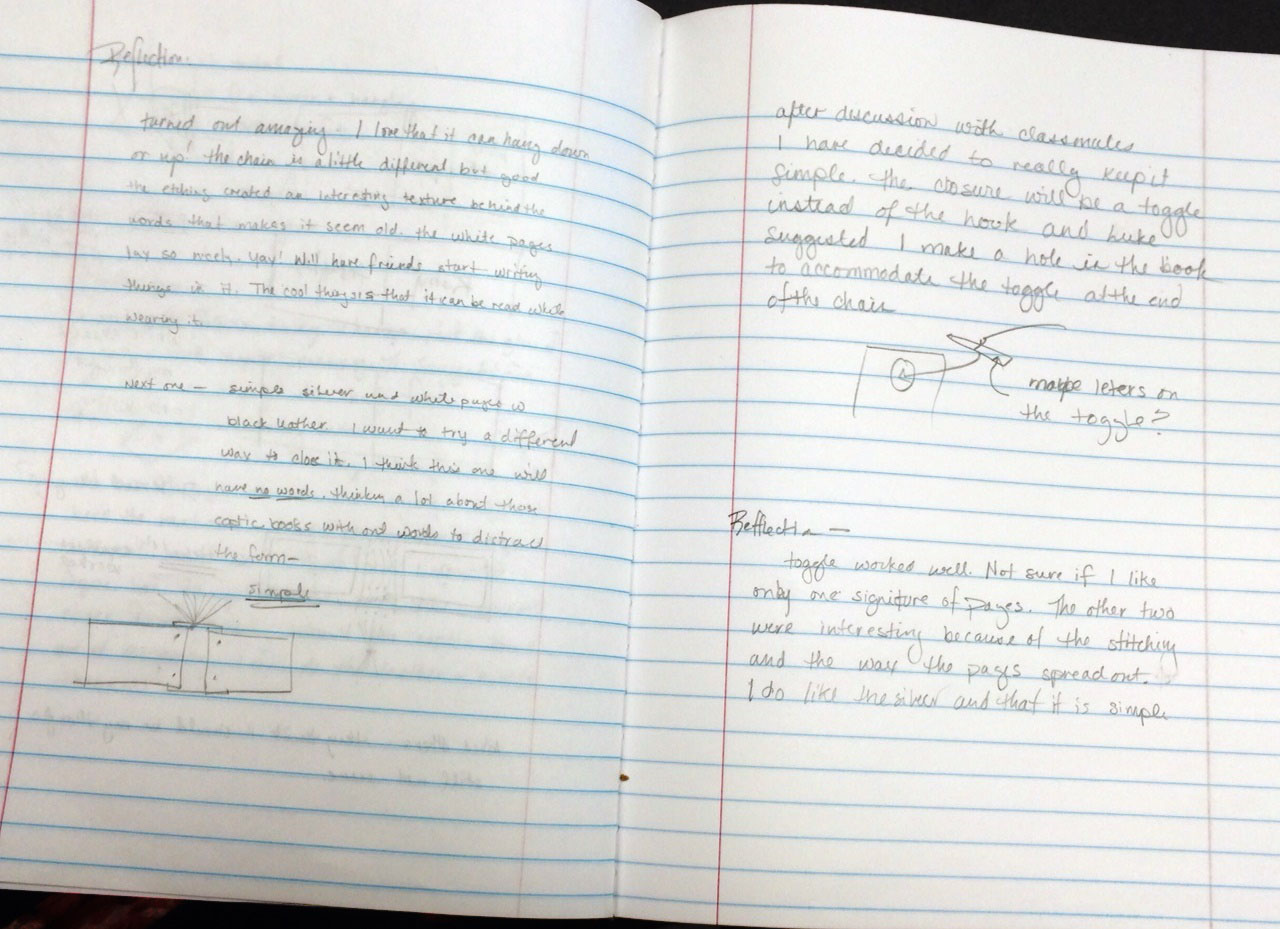 Reflection:
turned out amazing. I love that it can hang down
or up! the chain is a little different but good
the etching created an interesting texture behind the
words that makes it seem old. the white pages
lay so nicely. yay! Will have friends start writing
things in it. The cool thing is that it can be read while
wearing it.
Next one — simple silver and white pages w
black leather. I want to try a different
way to close it. I think this one will
have no words. thinkin a lot about those
coptic books with words to distract
the form—
simple
after discussion with classmates
I have decided to really keep it
simple. the closure will be a toggle
instead of the hook and Luke
suggested I make a hole in the book
to accommodate the toggle at the end
of the chain
maybe leters on
the toggle?
Refflectin —
toggle worked well. Not sure if I like
only one signiture of pages. The other two
were interesting because of the stitching
and the way the pages spread out.
I do like the silver and that it is simple